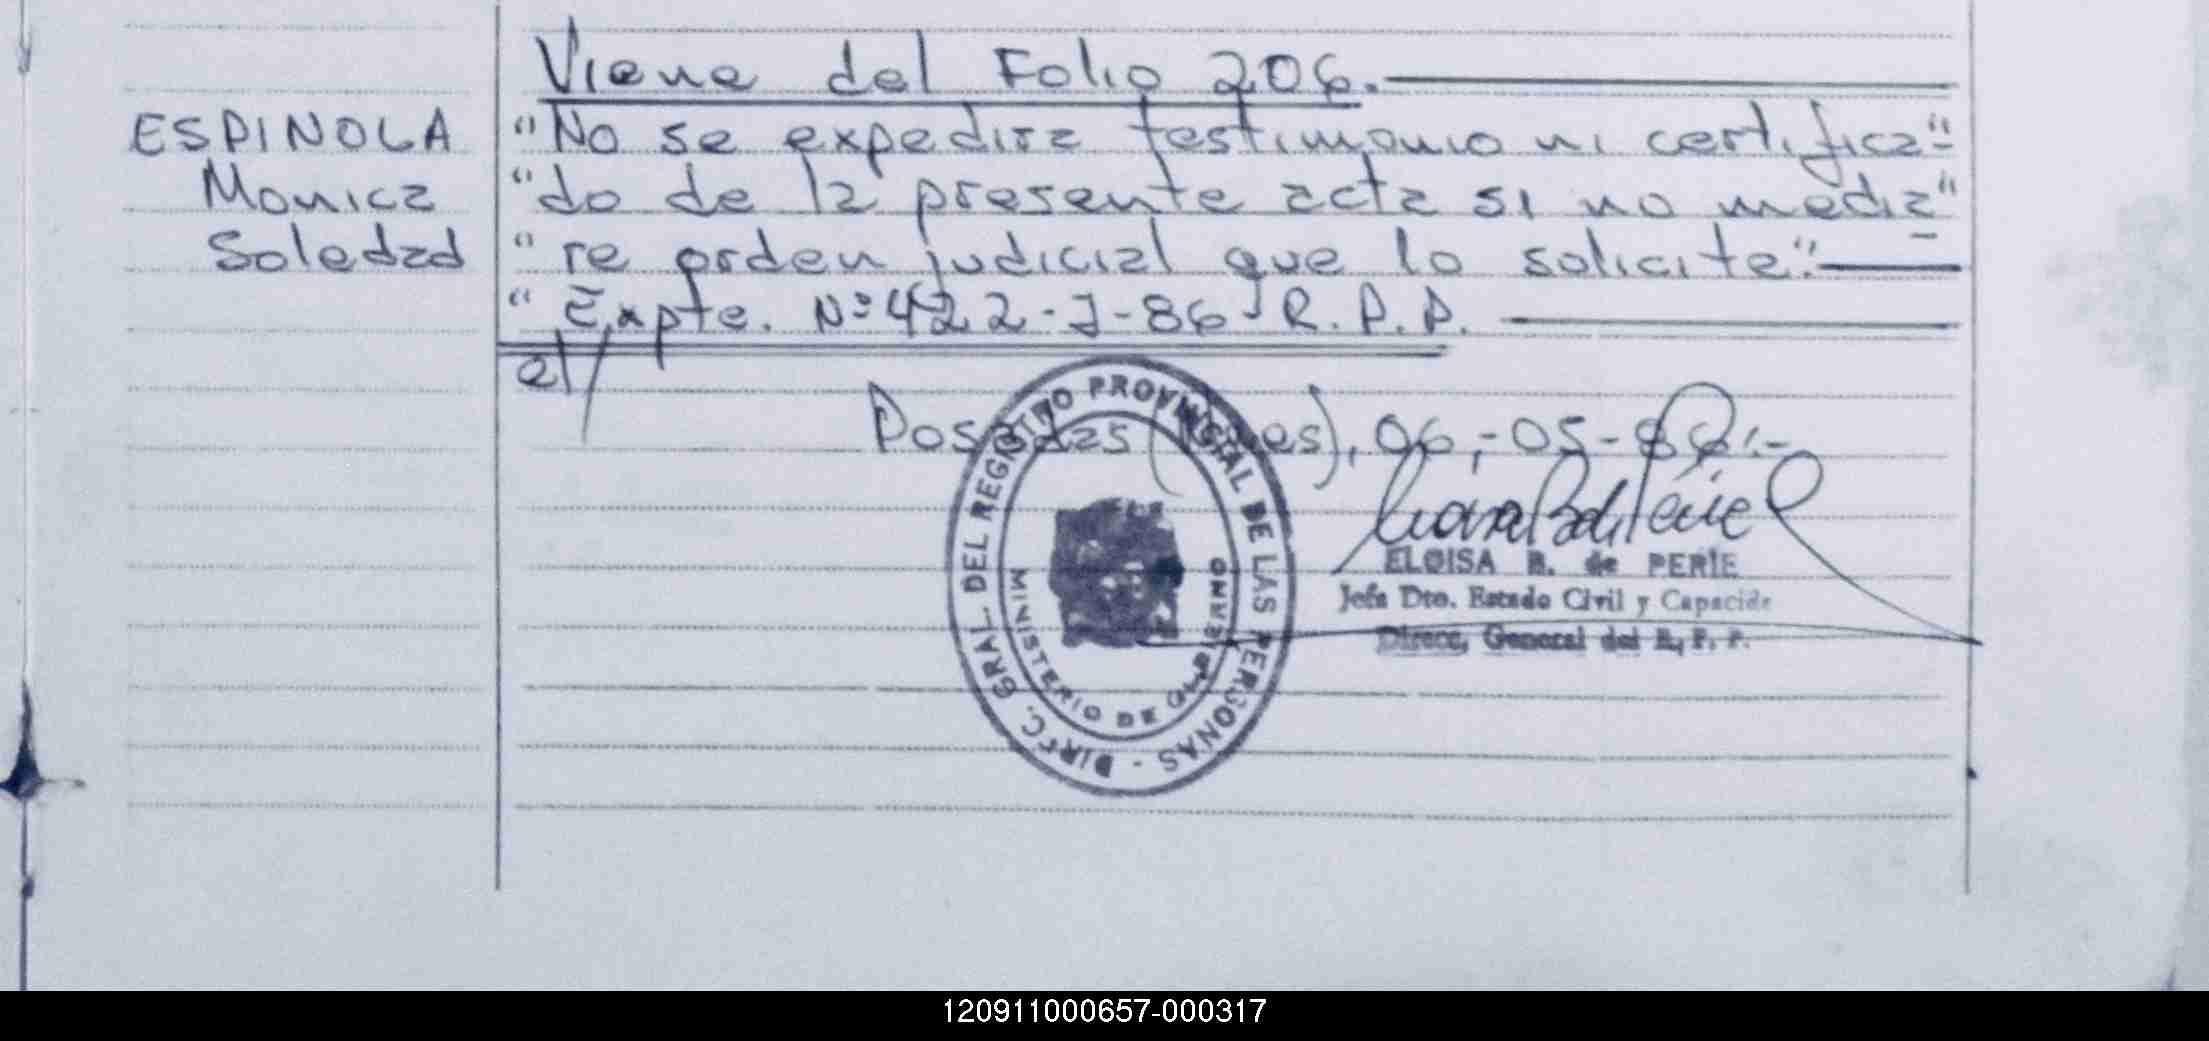 Viene del Folio 206.
ESPINOLA
Monica
Soledad
"No se expedira testimonio ni certifica"
"do de la presente acta si no media"
"re orden judicial que lo solicite".
"Expte. Nº 422-J-86-R.P.P.
el/
Posadas (Mnes), 06,-05-86.-
ELOISA B. de PERIE
Jefa Dto. Estado Civil y Capacid
Direcc. General del R. P. P.
DIREC. GRAL. DEL REGISTRO PROVINCIAL DE LAS PERSONAS -
MINISTERIO DE GOBIERNO
120911000657-000317